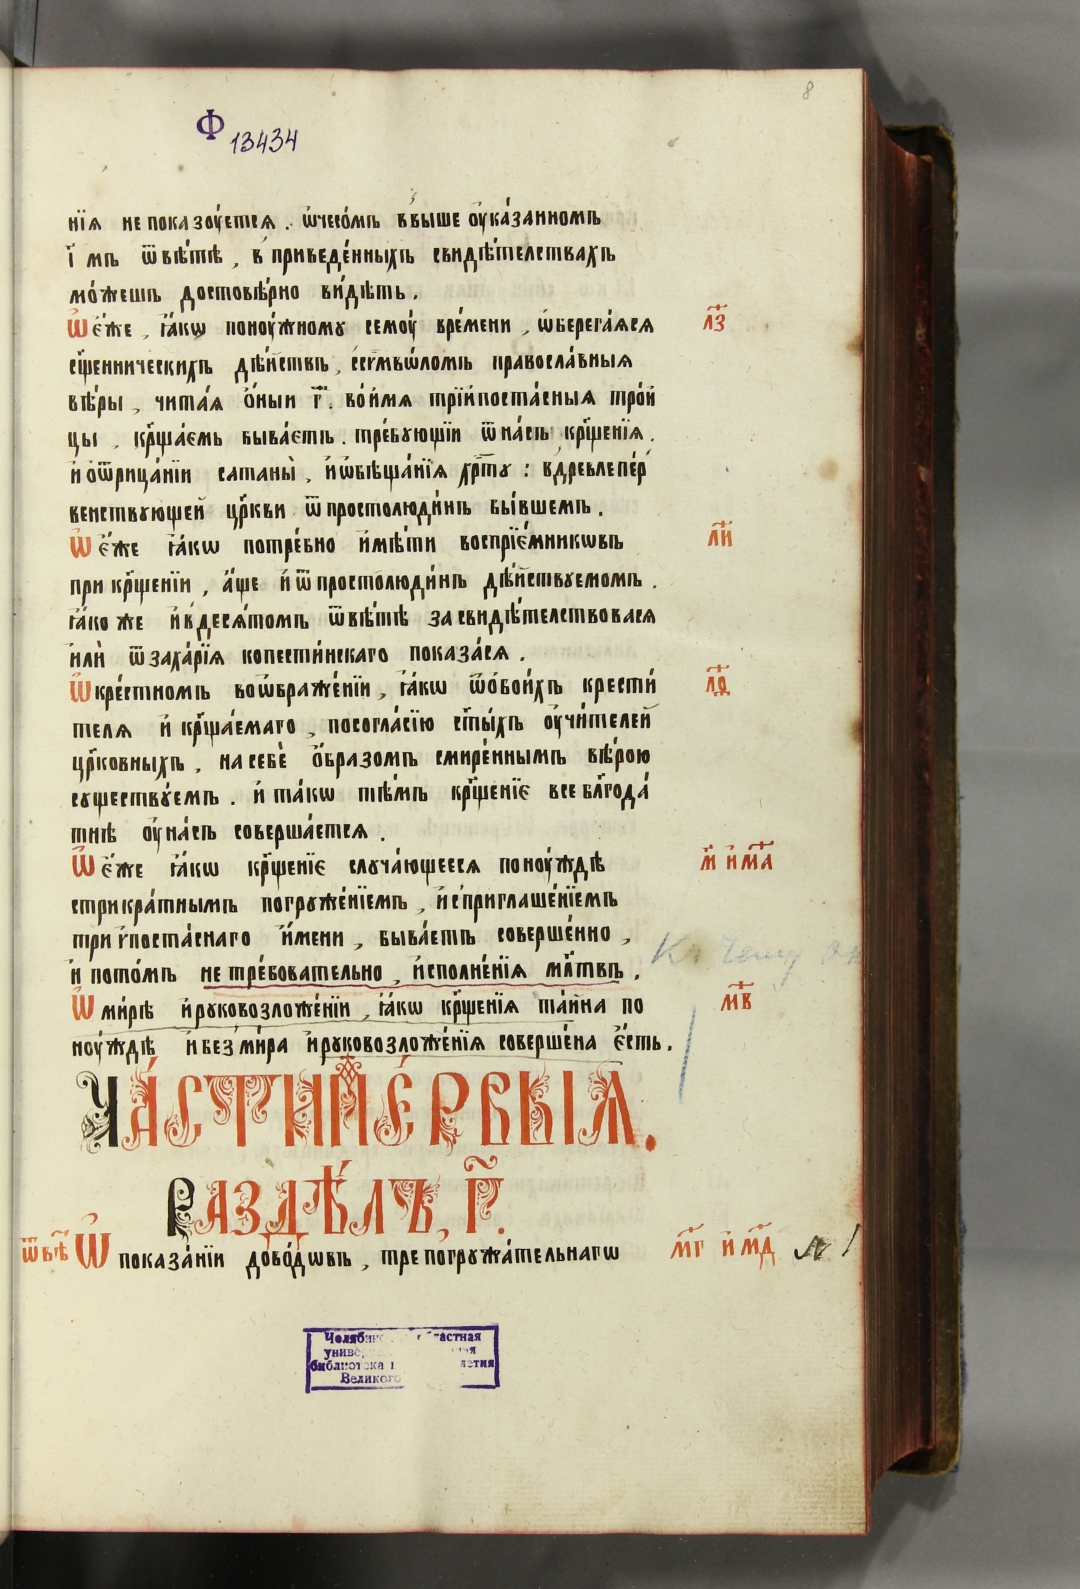 8
Ф 13434
нїѧ не показꙋ́етсѧ. ѡ҆чесо́мъ ввы́ше ᲂу҆ка́занномъ
і҆́мъ ѿвѣ́тѣ, в приведе́нныхъ свидѣ́телствахъ
мо́жешъ достовѣ́рно ви́дѣть.
Ѡ҆ є҆́же, ꙗ҆́кѡ поно́ужному семоу̀ вре́мени, ѡ҆берега́ѧсѧ лз҃
сщ҃е́нническихъ дѣ́йствъ, ссѵмвѡ́ломъ правосла́вныѧ
вѣ́ры, чита́ѧ ѻ҆́ный г҃. во и҆́мѧ трїѵпоста́сныѧ тро́й
цы, кр҃ща́емь быва́етъ. тре́бующїи ѿ на́съ кр҃ще́нїѧ,
и҆ ѿрица́нїи сатаны̀, и҆ ѡ҆бѣща́нїѧ хр҃ту̀: в дре́вле пе́р
венствующей цр҃кви ѿ простолюди́нъ бы́вшемъ.
Ѡ҆ є҆́же ꙗ҆́кѡ потре́бно и҆мѣ́ти воспрїе́мникѡвъ ли҃
при кр҃ще́нїи, а҆́ще и҆ ѿ простолюди́нъ дѣ́йствуемомъ.
ꙗ҆́ко же и҆ в десѧ́томъ ѿвѣ́тѣ засвидѣ́телствовасѧ
и҆лѝ ѿ заха́рїѧ копести́нскаго показа́сѧ.
Ѡ҆ кре́стномъ воѡ҆браже́нїи, ꙗ҆́кѡ ѿ ѻ҆бои́хъ крести́ лѳ҃
телѧ и҆ кр҃ща́емаго, по согла́сїю ст҃ы́хъ ᲂу҆чи́телей
цр҃ко́вныхъ, на себѐ ѻ҆́бразомъ смире́ннымъ вѣ́рою
существу́емъ. и҆ та́кѡ тѣ́мъ кр҃ще́нїе все бл҃года́
тнѣ ᲂу҆ на́съ соверша́етсѧ.
Ѡ҆ є҆́же ꙗ҆́кѡ кр҃ще́нїе случа́ющеесѧ по ноу́ждѣ м҃ и҆ ма҃
стрикра́тнымъ погруже́нїемъ, и҆ с приглаше́нїемъ
три ѵпоста́снаго и҆́мени, быва́етъ соверше́нно,
и҆ пото́мъ не тре́бовательно, и҆сполне́нїѧ мл҃твъ. К. Чему
Ѡ҆ мѵ́рѣ и҆ руковозложе́нїи, ꙗ҆́кѡ кр҃ще́нїѧ та́йна по мв҃
ноу́ждѣ и҆ без мѵ́ра и҆ руковозложе́нїѧ соверше́на є҆́сть.
ЧА́СТИ ПЕ́РВЫѦ.
РАЗДѢ́ЛЪ, Г҃.
ѿвѣ́ Ѡ҆ показа́нїи дово́дѡвъ, трепогружа́тельнагѡ мг҃ и҆ мд҃ № 1
Челябинс областная
универ
библиотека летия
Великого